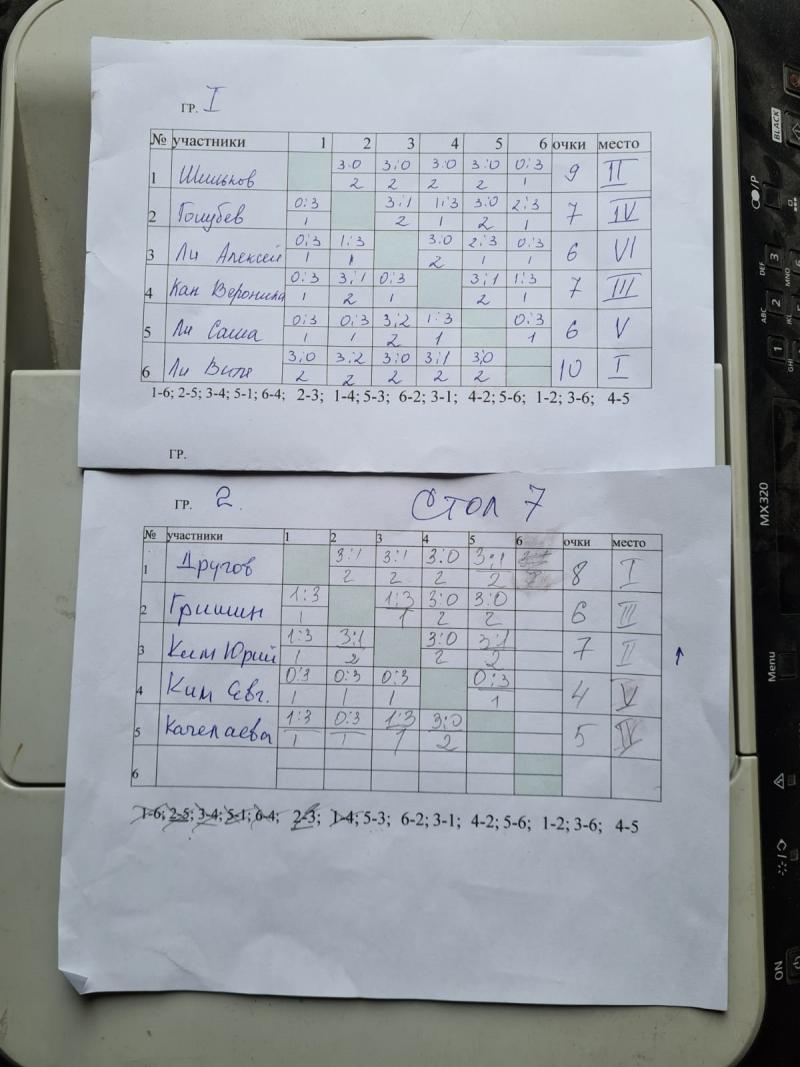 ГР. I
№ участники 1 2 3 4 5 6 очки место
1 Шильков 3:0 3:0 3:0 3:0 0:3 9 II
2 2 2 2 1
2 Голубев 0:3 3:1 1:3 3:0 2:3 7 IV
1 2 1 2 1
3 Ли Алексей 0:3 1:3 3:0 2:3 0:3 6 VI
1 1 2 1 1
4 Кан Вероника 0:3 3:1 0:3 3:1 1:3 7 III
1 2 1 2 1
5 Ли Саша 0:3 0:3 3:2 1:3 0:3 6 V
1 1 2 1 1
6 Ли Витя 3:0 3:2 3:0 3:1 3:0 10 I
2 2 2 2 2
1-6; 2-5; 3-4; 5-1; 6-4; 2-3; 1-4; 5-3; 6-2; 3-1; 4-2; 5-6; 1-2; 3-6; 4-5
ГР.
ГР. 2. Стол 7
№ участники 1 2 3 4 5 6 очки место
1 Другов 3:1 3:1 3:0 3:1 8 I
2 2 2 2
2 Гришин 1:3 1:3 3:0 3:0 6 III
1 1 2 2
3 Ким Юрий 1:3 3:1 3:0 3:1 7 II
1 2 2 2
4 Ким Евг. 0:3 0:3 0:3 0:3 4 V
1 1 1 1
5 Качелаева 1:3 0:3 1:3 3:0 5 IV
1 1 1 2
6
1-6; 2-5; 3-4; 5-1; 6-4; 2-3; 1-4; 5-3; 6-2; 3-1; 4-2; 5-6; 1-2; 3-6; 4-5
BLACK
DEF
ABC
MNO
3
2
1
MX320
Menu
ON